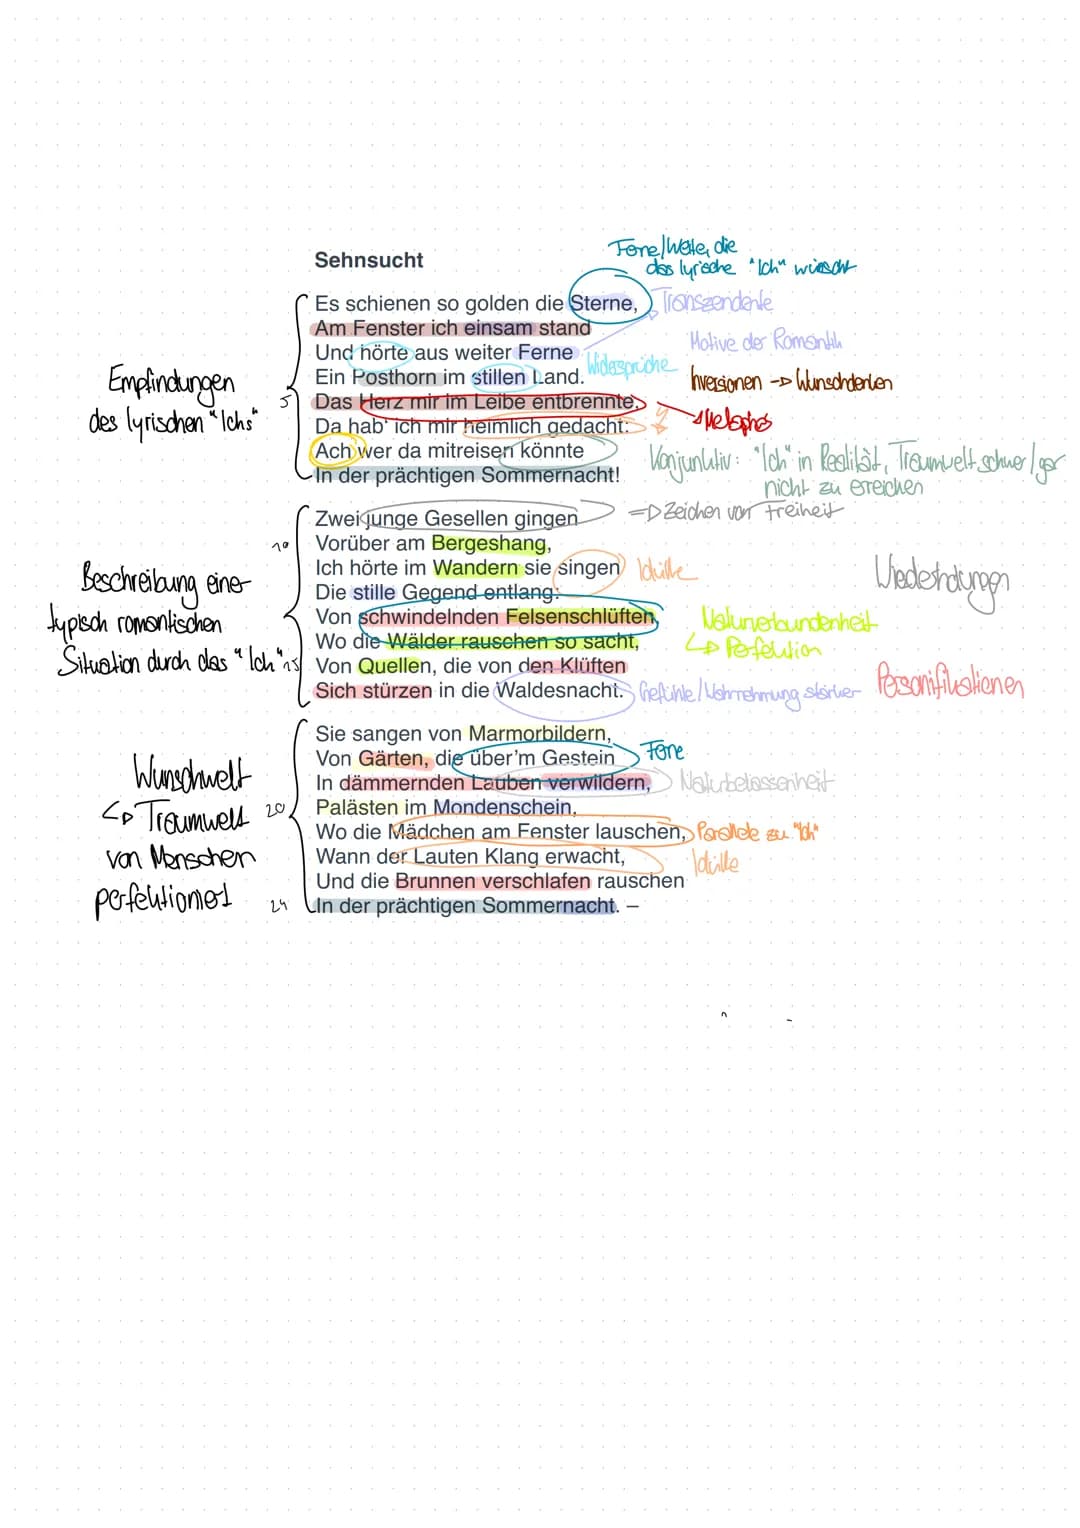 Ferne/Weite, die
das lyrische "Ich" wünscht
Sehnsucht
Es schienen so golden die Sterne,
Transzendente
Am Fenster ich einsam stand
Motive der Romantik
Und hörte aus weiter Ferne
Widersprüche
Ein Posthorn im stillen Land.
Inversionen -> Wunschdenken
Empfindungen
des lyrischen "Ichs"
5
Das Herz mir im Leibe entbrennte,
Metapher
Da hab' ich mir heimlich gedacht:
Ach wer da mitreisen könnte
Konjunktiv: "Ich" in Realität, Traumwelt schwer/gar
nicht zu erreichen
In der prächtigen Sommernacht!
Zwei junge Gesellen gingen
=> Zeichen von Freiheit
10
Vorüber am Bergeshang,
Ich hörte im Wandern sie singen
Idylle
Wiederholungen
Die stille Gegend entlang:
Beschreibung einer
typisch romantischen
Situation durch das "Ich"
Von schwindelnden Felsenschlüften,
Naturverbundenheit
Wo die Wälder rauschen so sacht,
↳ Perfektion
15
Von Quellen, die von den Klüften
Sich stürzen in die Waldesnacht.
Gefühle/Wahrnehmung stärker
Personifikationen
Sie sangen von Marmorbildern,
Von Gärten, die über'm Gestein
Ferne
In dämmernden Lauben verwildern,
Naturbelassenheit
Wunschwelt
↳ Traumwelt
von Menschen
perfektioniert
20
Palästen im Mondenschein,
Wo die Mädchen am Fenster lauschen,
Parallele zu "Ich"
Wann der Lauten Klang erwacht,
Idylle
Und die Brunnen verschlafen rauschen
24
In der prächtigen Sommernacht. –